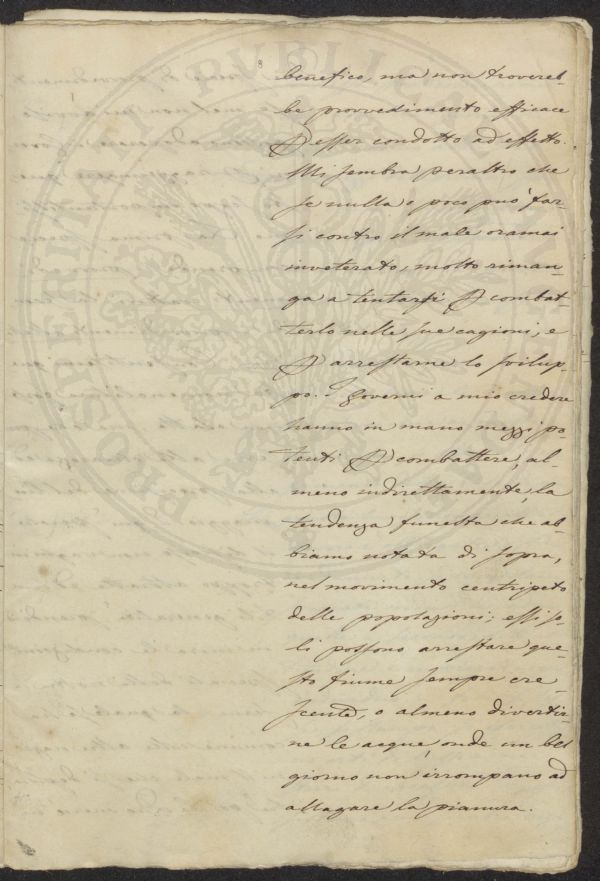 8
benefico, ma non troverеb-
be provvedimento efficace
P esser condotto ad effetto.
Mi sembra peraltro che
se nulla o poco può far-
si contro il male oramai
inveterato, molto riman-
ga a tentarsi P combat-
terlo nelle sue cagioni, e
P arrestarne lo svilup-
po. I governi a mio credere
hanno in mano mezzi po-
tenti P combattere, al-
meno indirettamente, la
tendenza funesta che ab-
biamo notata di sopra,
nel movimento centripeto
delle popolazioni; essi so-
li possono arrestare que-
sto fiume sempre cre-
scente, o almeno divertir-
ne le acque, onde un bel
giorno non irrompano ad
allagare la pianura.
PROSPERITATI PUBLICAE